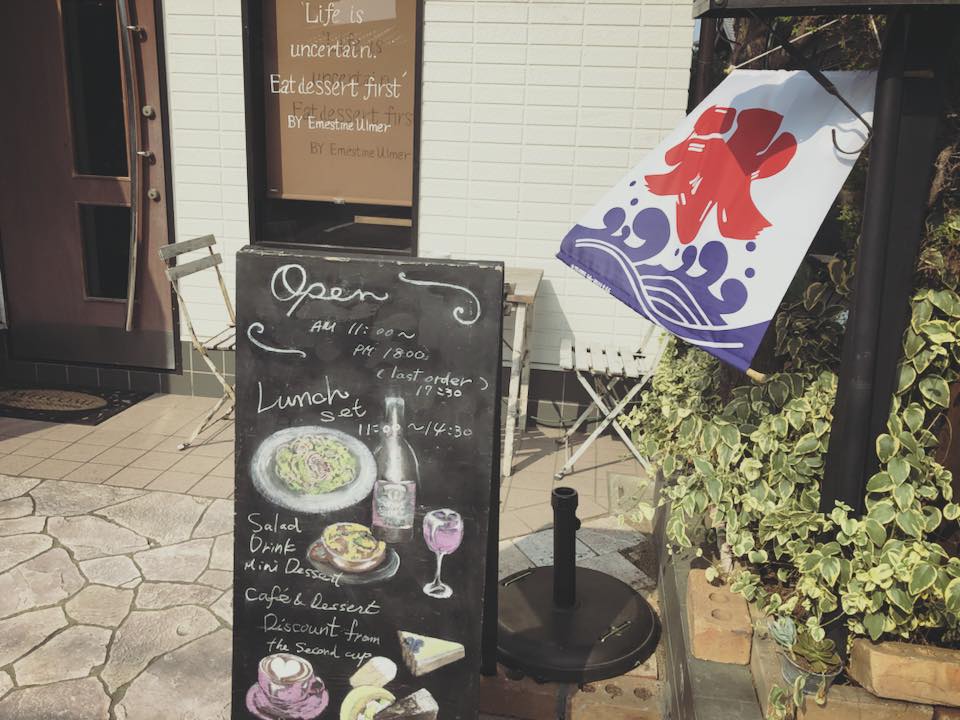 "Life is
uncertain.
Eat dessert first"
BY Ernestine Ulmer
氷
Open
AM 11:00～
PM 18:00
(last order)
17:30
Lunch
set
11:00～14:30
Salad
Drink
Mini Dessert
Café & Dessert
Discount from
the second cup